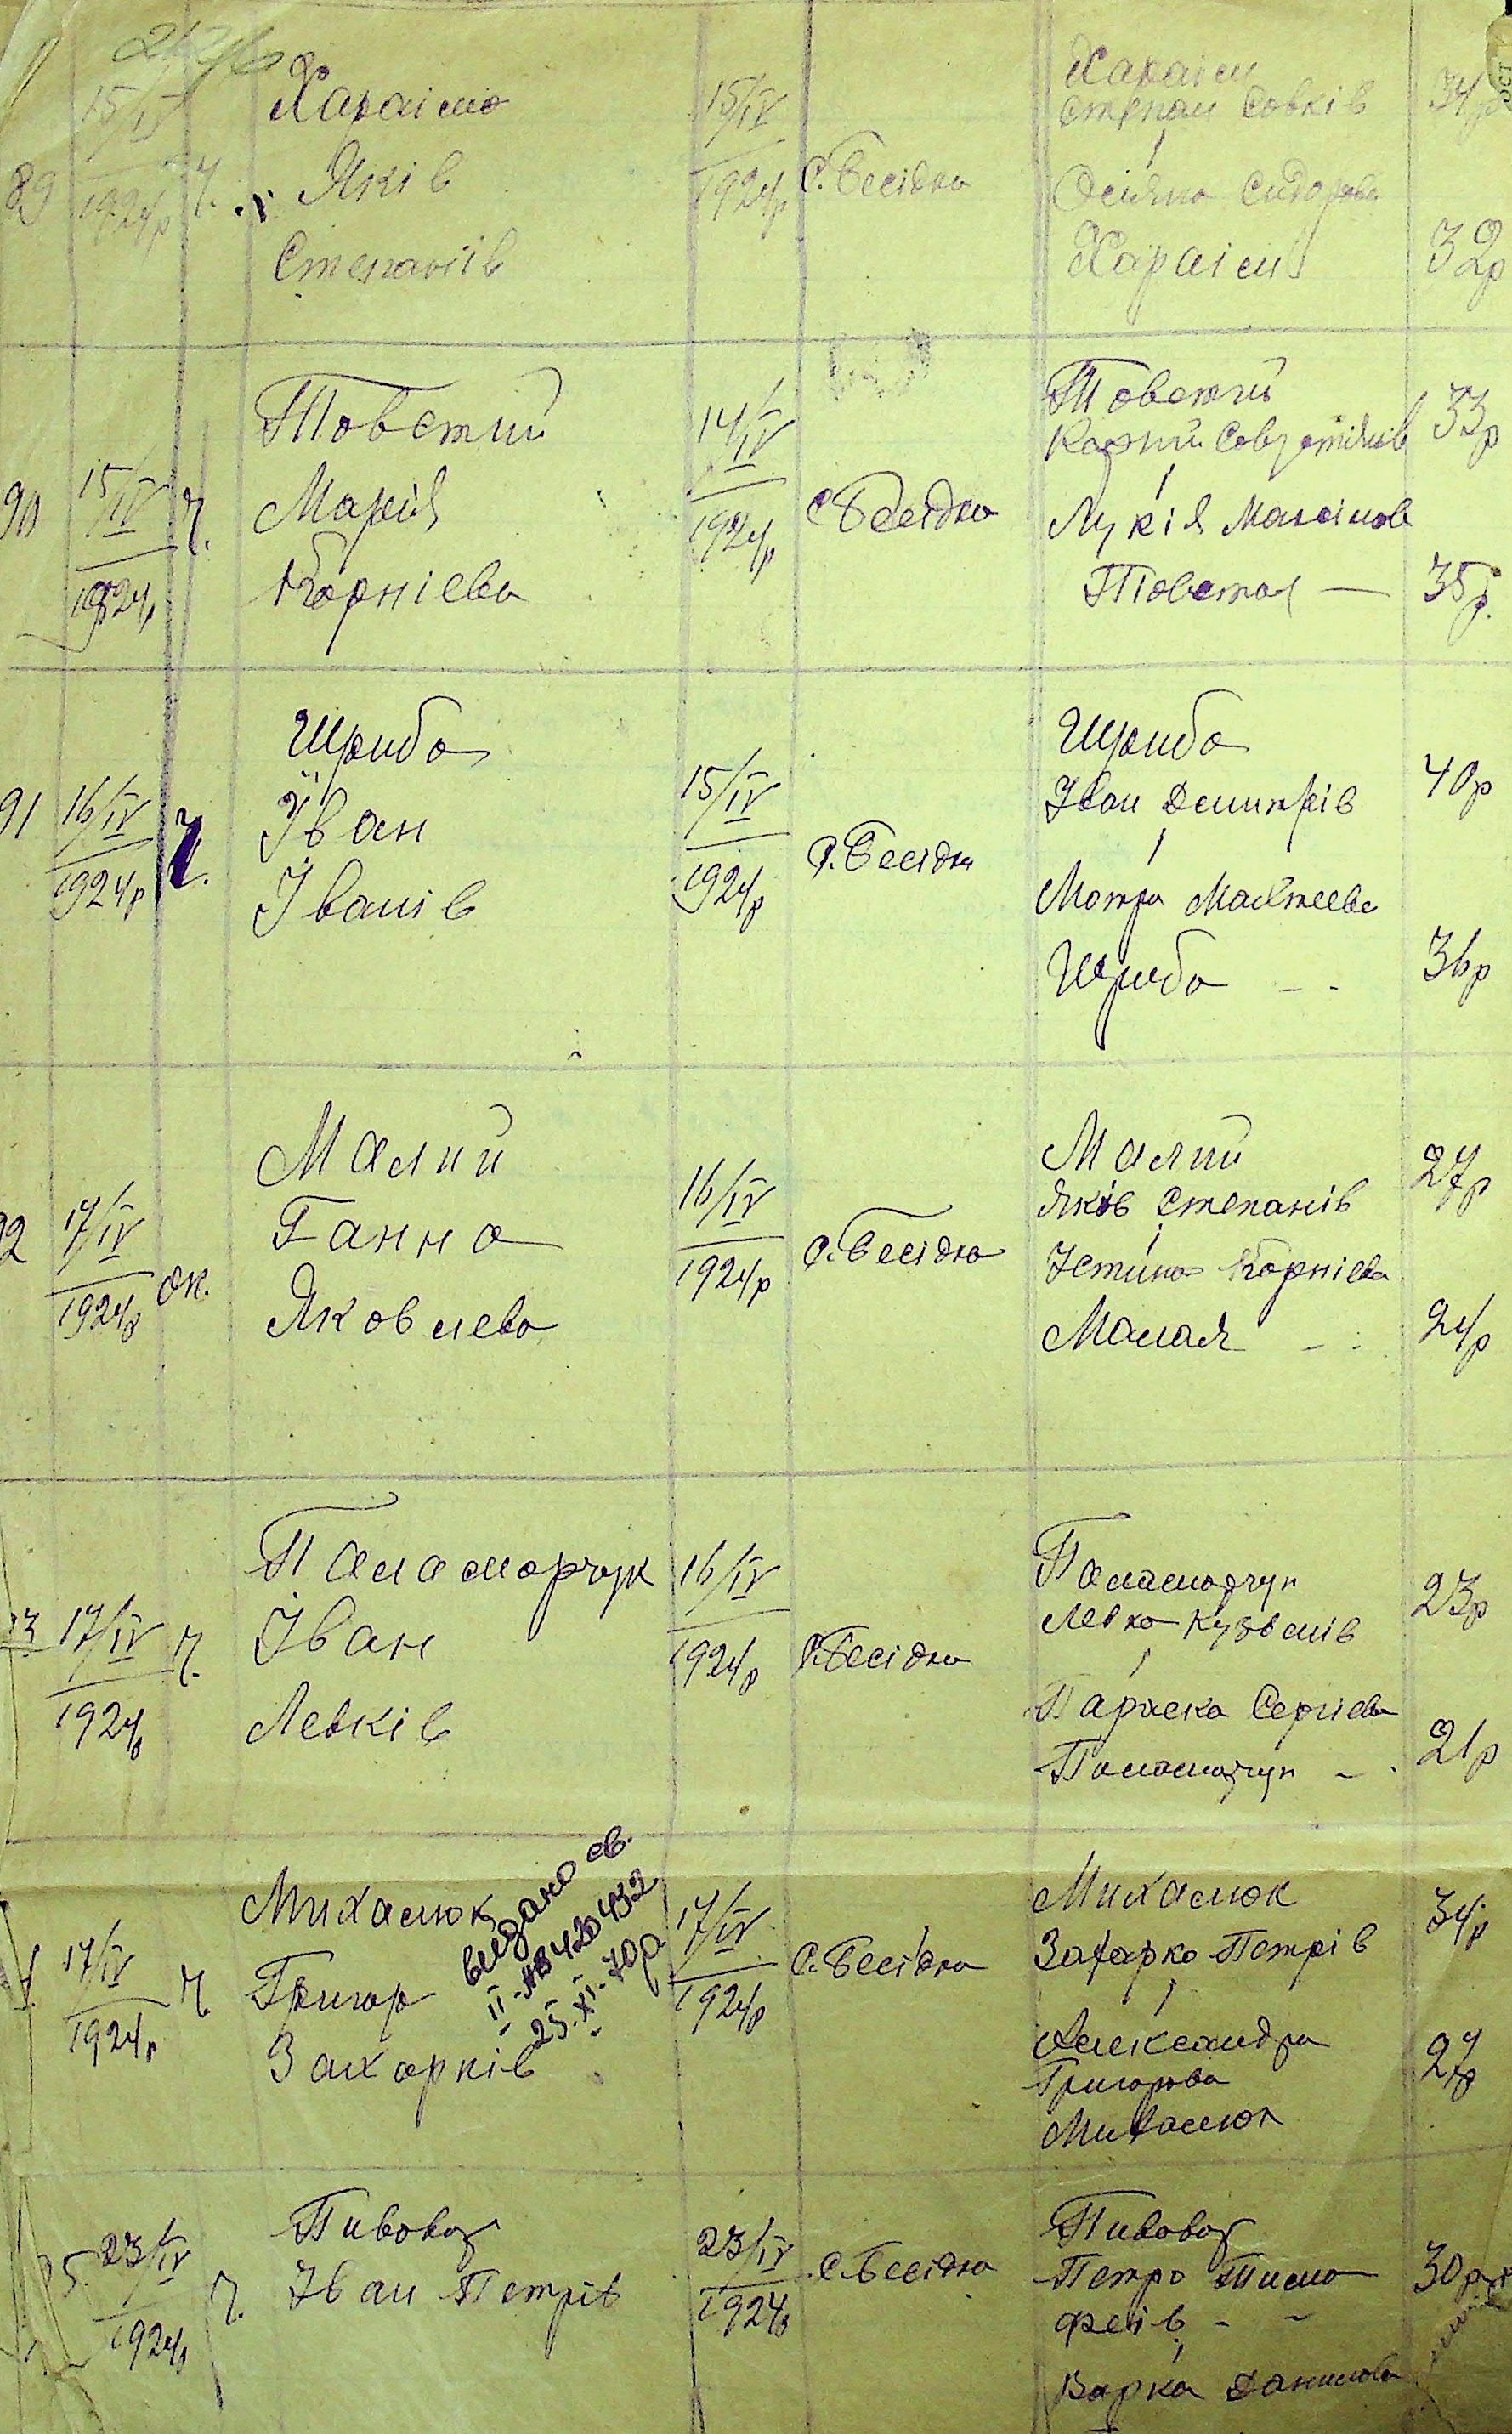 15/IV
1924р
89
ч.
Хараїм
Яків
Степанів
15/IV
1924р
с. Бесідка
Хараїм
Степан Савків
і
Сидорова
Хараїм
34р
32р
90
15/IV
1924р
ч.
Товстий
Марія
Корніева
14/IV
1924р
с. Бесідка
Товстий
Корній
і
Лукія Максімова
Товстая —
33р
35р.
91
16/IV
1924р
ч.
Шриба
Іван
Іванів
15/IV
1924р
с. Бесідка
Шриба
Іван Дмитрів
і
Мотря Маятеева
Шриба - -
40р
36р
92
17/IV
1924р
ж.
Малий
Ганна
Яковлева
16/IV
1924р
с. Бесідка
Малий
Яків Степанів
і
Устина Корніева
Малая - -
27р
24р
93
17/IV
1924р
ч.
Паламарчук
Іван
Левків
16/IV
1924р
с. Бесідка
Паламарчук
Левко Кузьмів
і
Параска Сергіева
Паламарчук - -
23р
21р
17/IV
1924р
ч.
Михалюк
Григор
Захарків
видано св.
II-АВ 420432
25.XI.70р
17/IV
1924р
с. Бесідка
Михалюк
Захарко Петрів
і
Александра
Григорова
Михалюк
34р
27р
5.
23/IV
1924р
ч.
Пивовар
Іван Петрів
23/IV
1924р
с. Бесідка
Пивовар
Петро Тимо
феів - -
і
Варка Данилова
30р